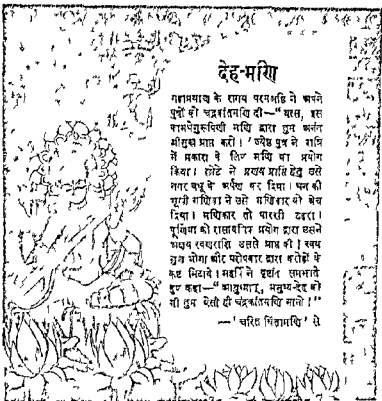 देह-मणि
महाप्रयाण के समय परमभट्टि ने अपने
पुत्रों को चंद्रकांतमणि दी—"वत्स, इस
कामधेनुरूपिणी मणि द्वारा तुम अनंत
श्रीसुख प्राप्त करो।' ज्येष्ठ पुत्र ने रात्रि
में प्रकाश के लिए मणि का प्रयोग
किया। छोटे ने प्रणय प्राप्ति हेतु उसे
नगर वधू के अर्पण कर दिया। धन की
भूखी गणिका ने उसे मणिकार को बेच
दिया। मणिकार तो पारखी ठहरा।
पूर्णिमा को रासायनिक प्रयोग द्वारा उसने
अक्षय स्वर्णराशि उससे प्राप्त की। स्वयं
सुख भोगा और परोपकार द्वारा करोड़ों के
कष्ट मिटाये। महर्षि ने दृष्टांत समझाते
हुए कहा—"आयुष्मान्, मनुष्य-देह को
भी तुम ऐसी ही चंद्रकांतमणि मानो।"
—'चरित्र चिंतामणि' से